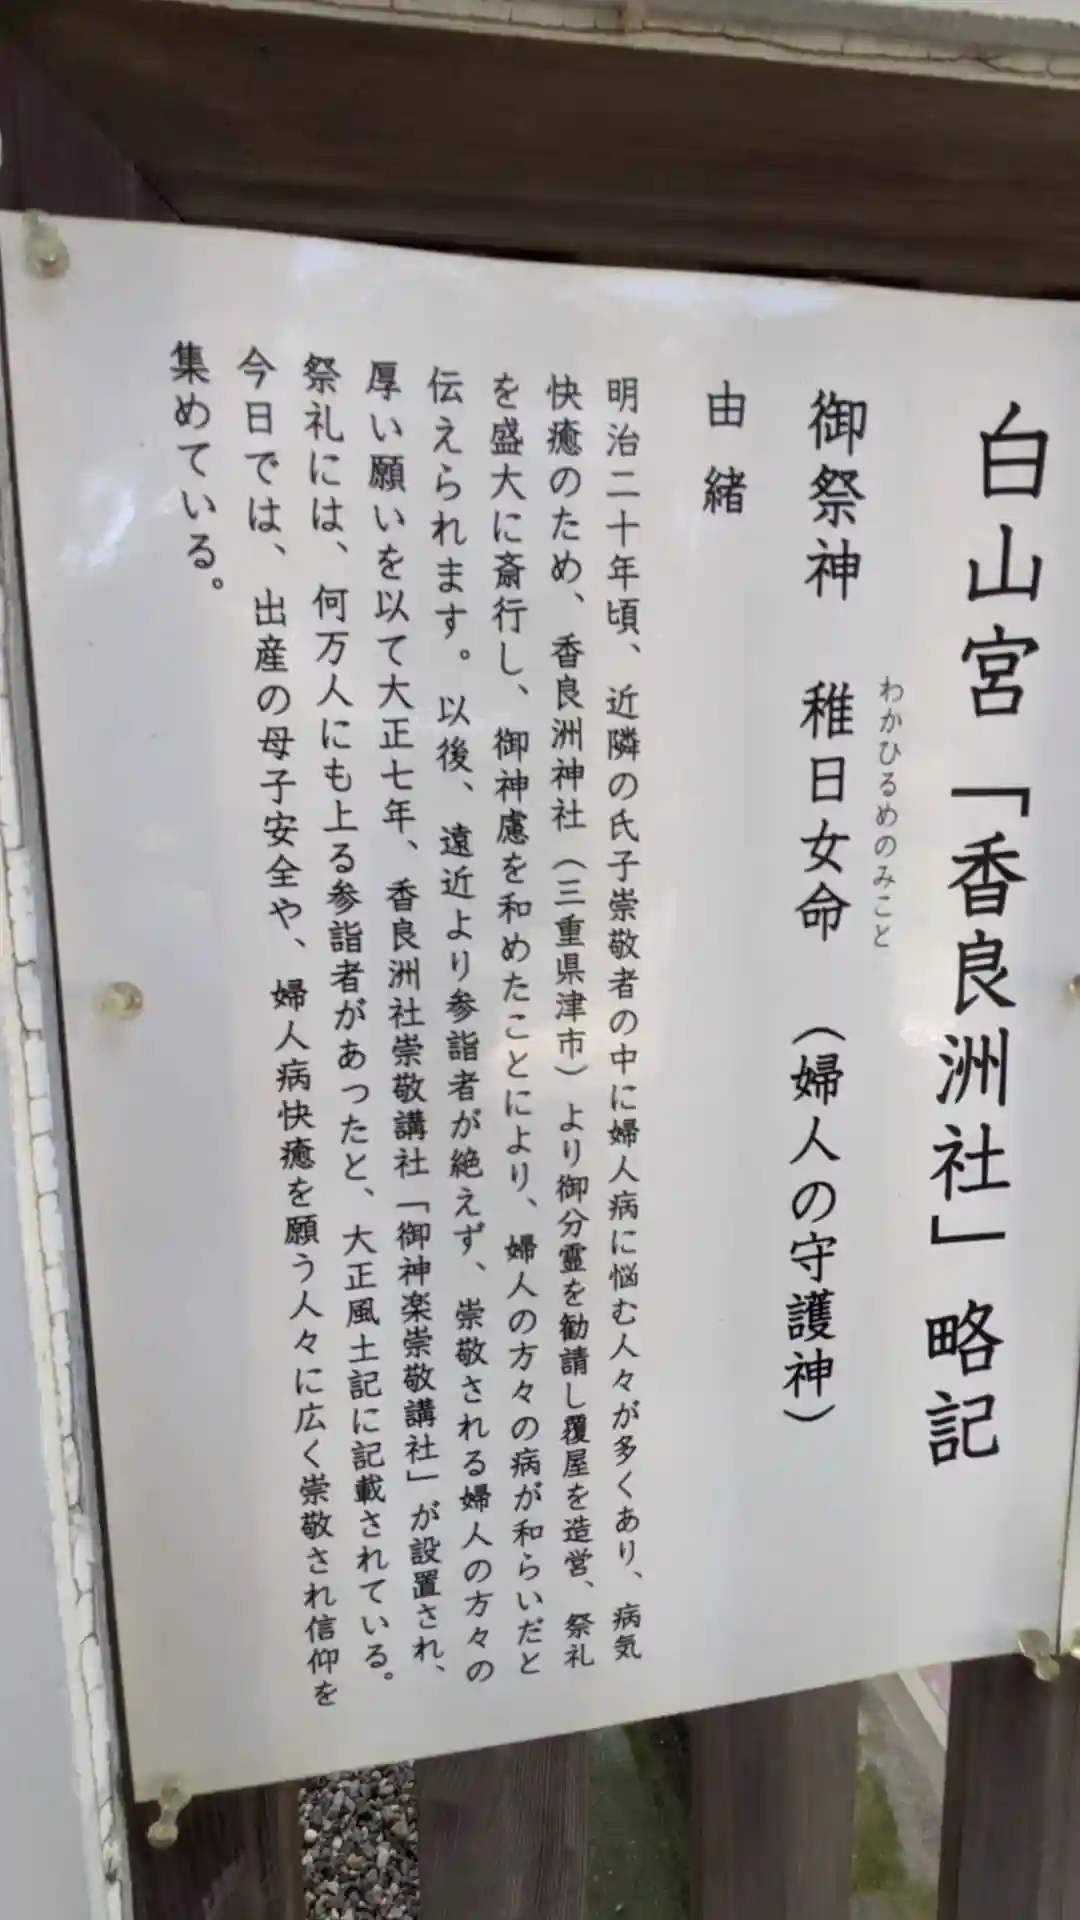 白山宮「香良洲社」略記
わかひるめのみこと
御祭神 稚日女命 (婦人の守護神)
由緒
明治二十年頃、近隣の氏子崇敬者の中に婦人病に悩む人々が多くあり、病気
快癒のため、香良洲神社(三重県津市)より御分霊を勧請し覆屋を造営、祭礼
を盛大に斎行し、御神慮を和めたことにより、婦人の方々の病が和らいだと
伝えられます。以後、遠近より参詣者が絶えず、崇敬される婦人の方々の
厚い願いを以て大正七年、香良洲社崇敬講社「御神楽崇敬講社」が設置され、
祭礼には、何万人にも上る参詣者があったと、大正風土記に記載されている。
今日では、出産の母子安全や、婦人病快癒を願う人々に広く崇敬され信仰を
集めている。